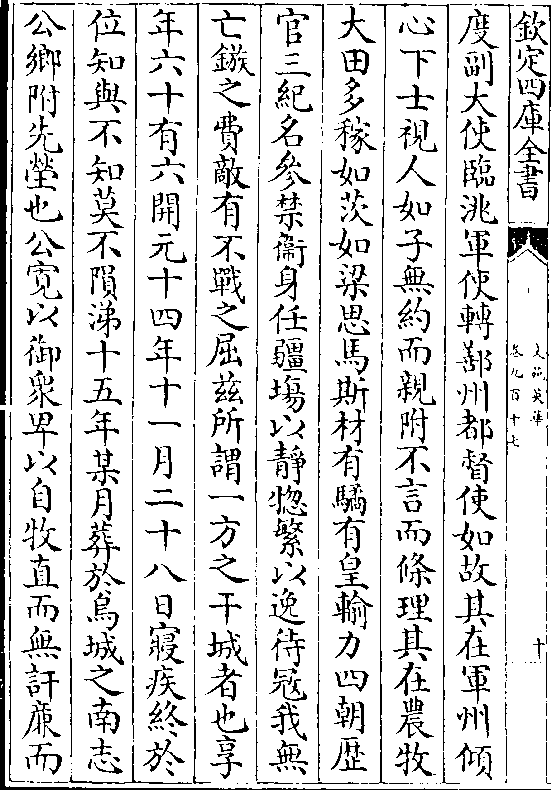 欽定四庫全書
文苑英華
卷九百十七
十
度副大使臨洮軍使轉鄯州都督使如故其在軍州傾
心下士視人如子無約而親附不言而條理其在農牧
大田多稼如茨如梁思馬斯材有驈有皇輸力四朝歴
官三紀名參禁衞身任疆埸以靜惣繁以逸待冦我無
亡鏃之費敵有不戰之屈兹所謂一方之干城者也享
年六十有六開元十四年十一月二十八日寢疾終於
位知與不知莫不隕涕十五年某月葬於鳥城之南志
公鄉附先塋也公寛以御衆卑以自牧直而無訐廉而